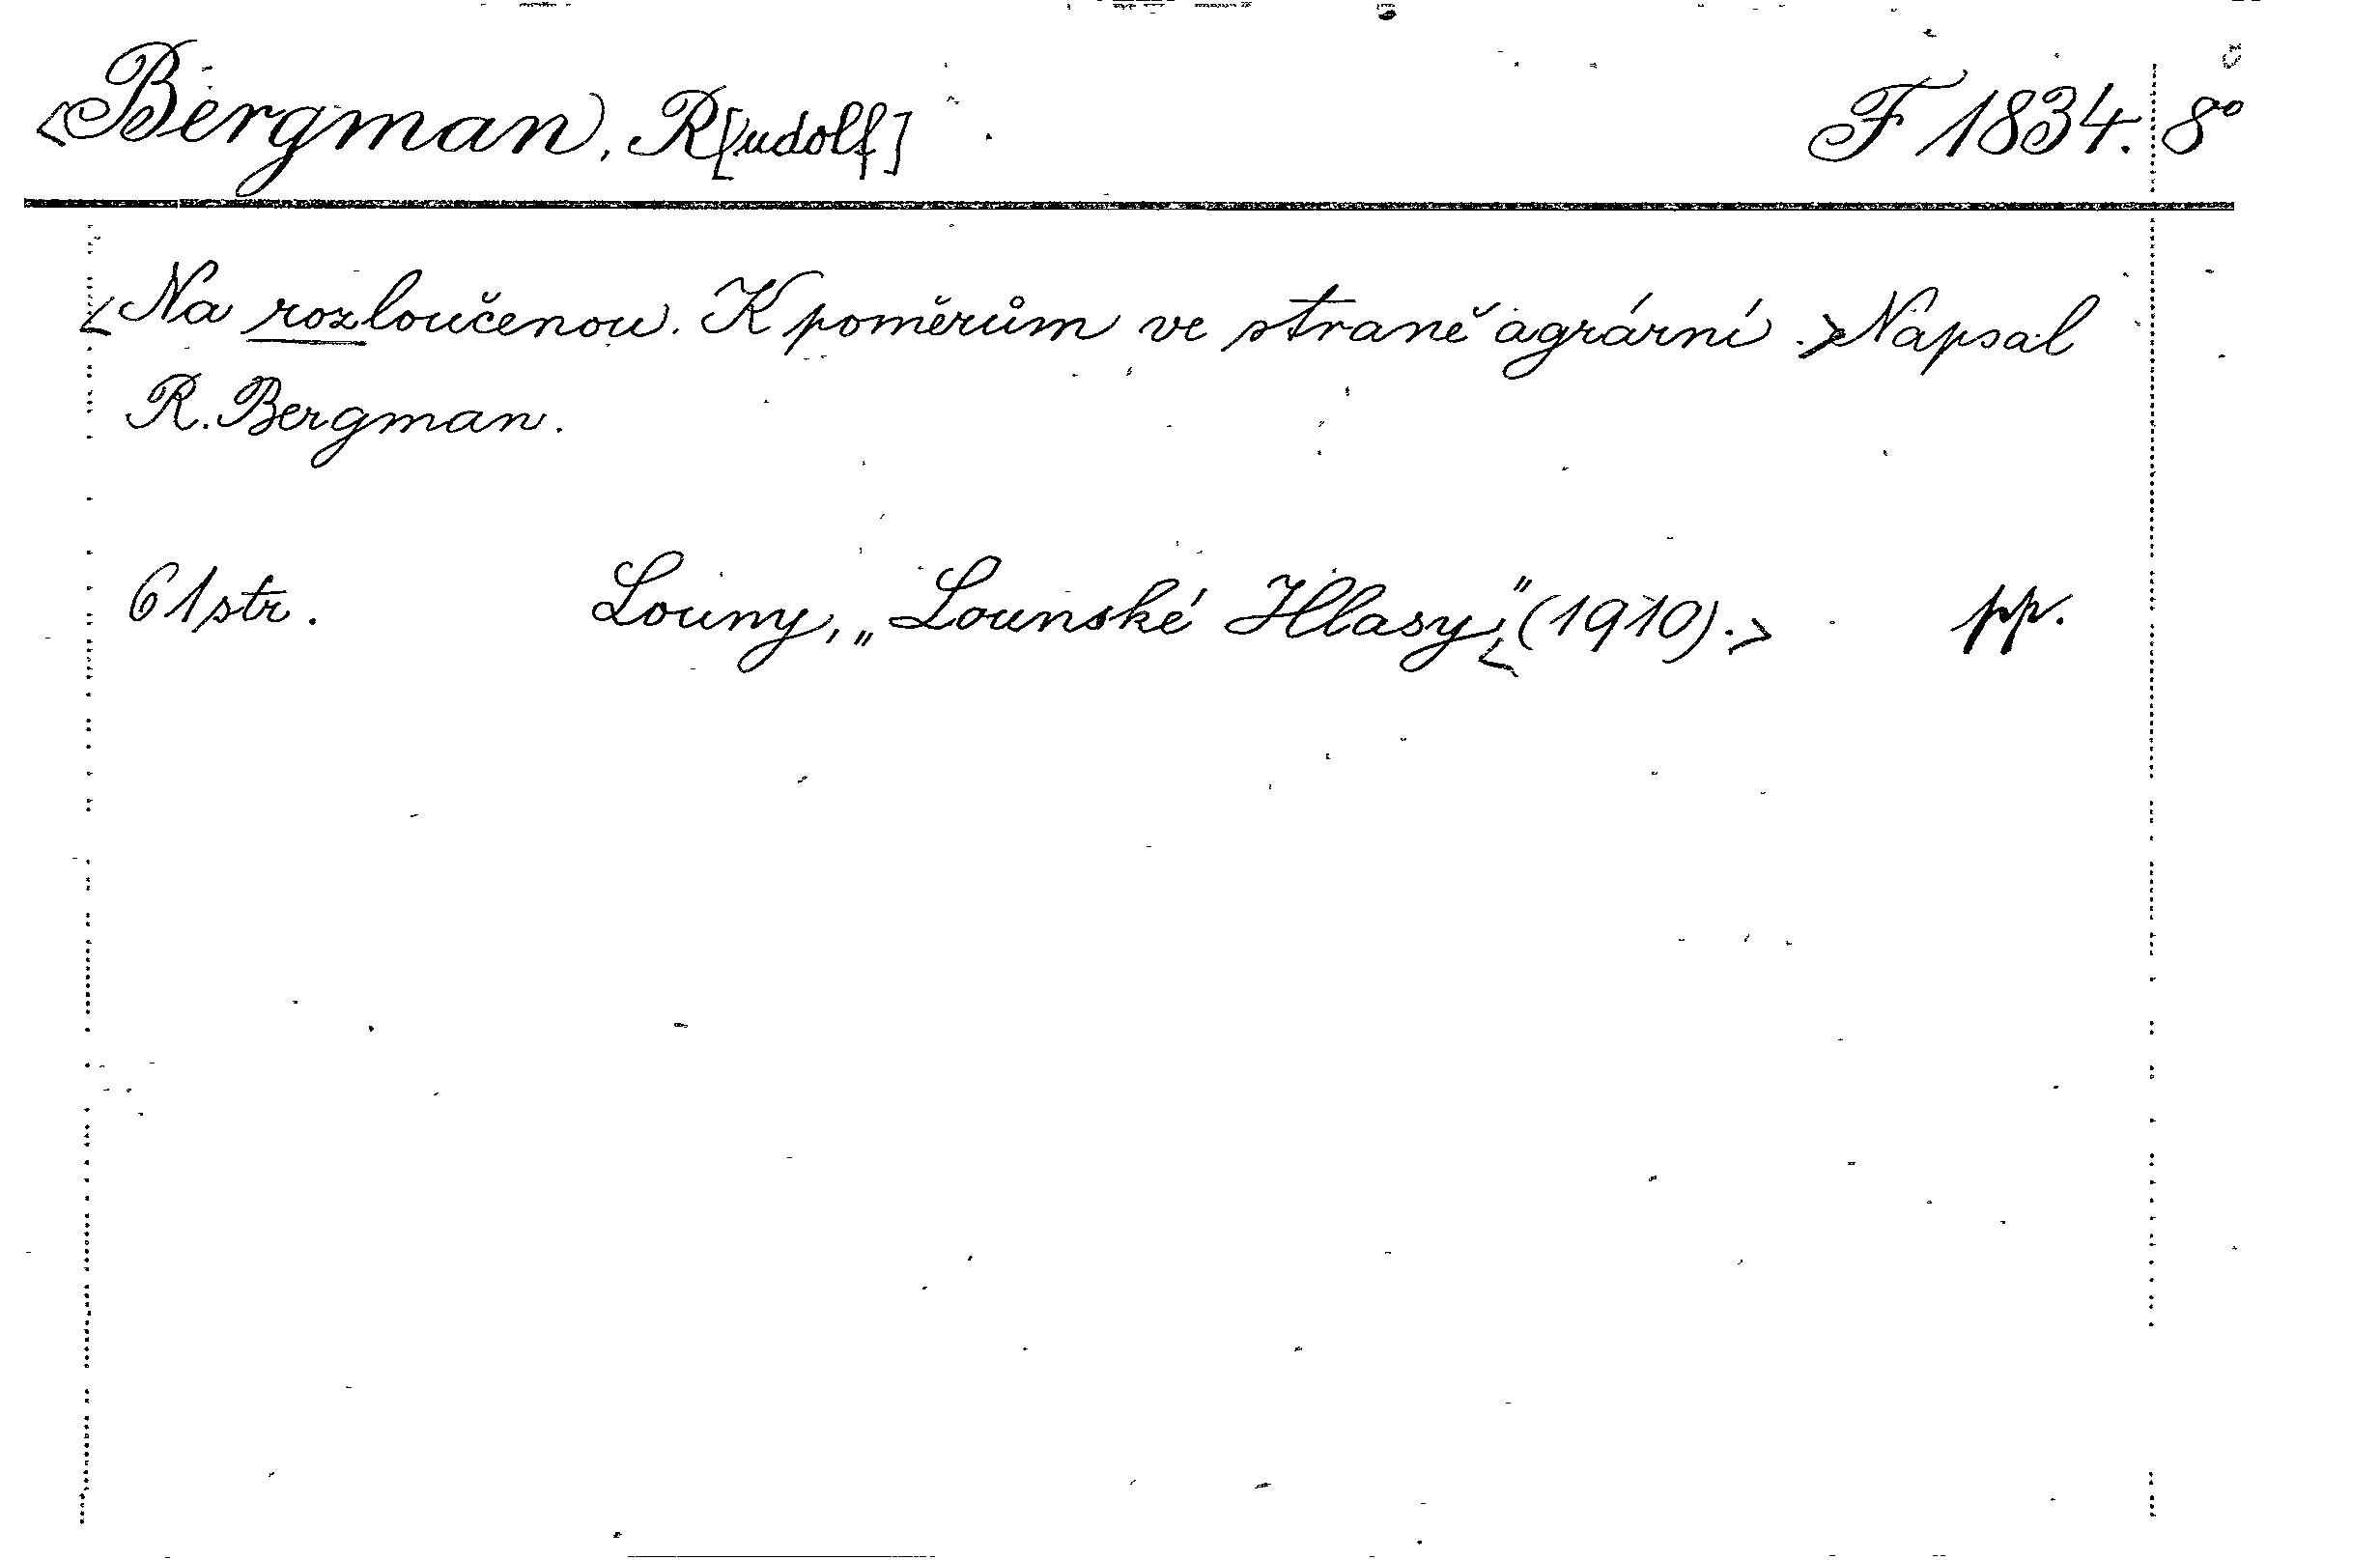 <Bergman, R[udolf] F 1834. 8°
<Na rozloučenou. K poměrům ve straně agrární.> Napsal
R. Bergman.
61 str. Louny, „Lounské Hlasy",<(1910).> pp.